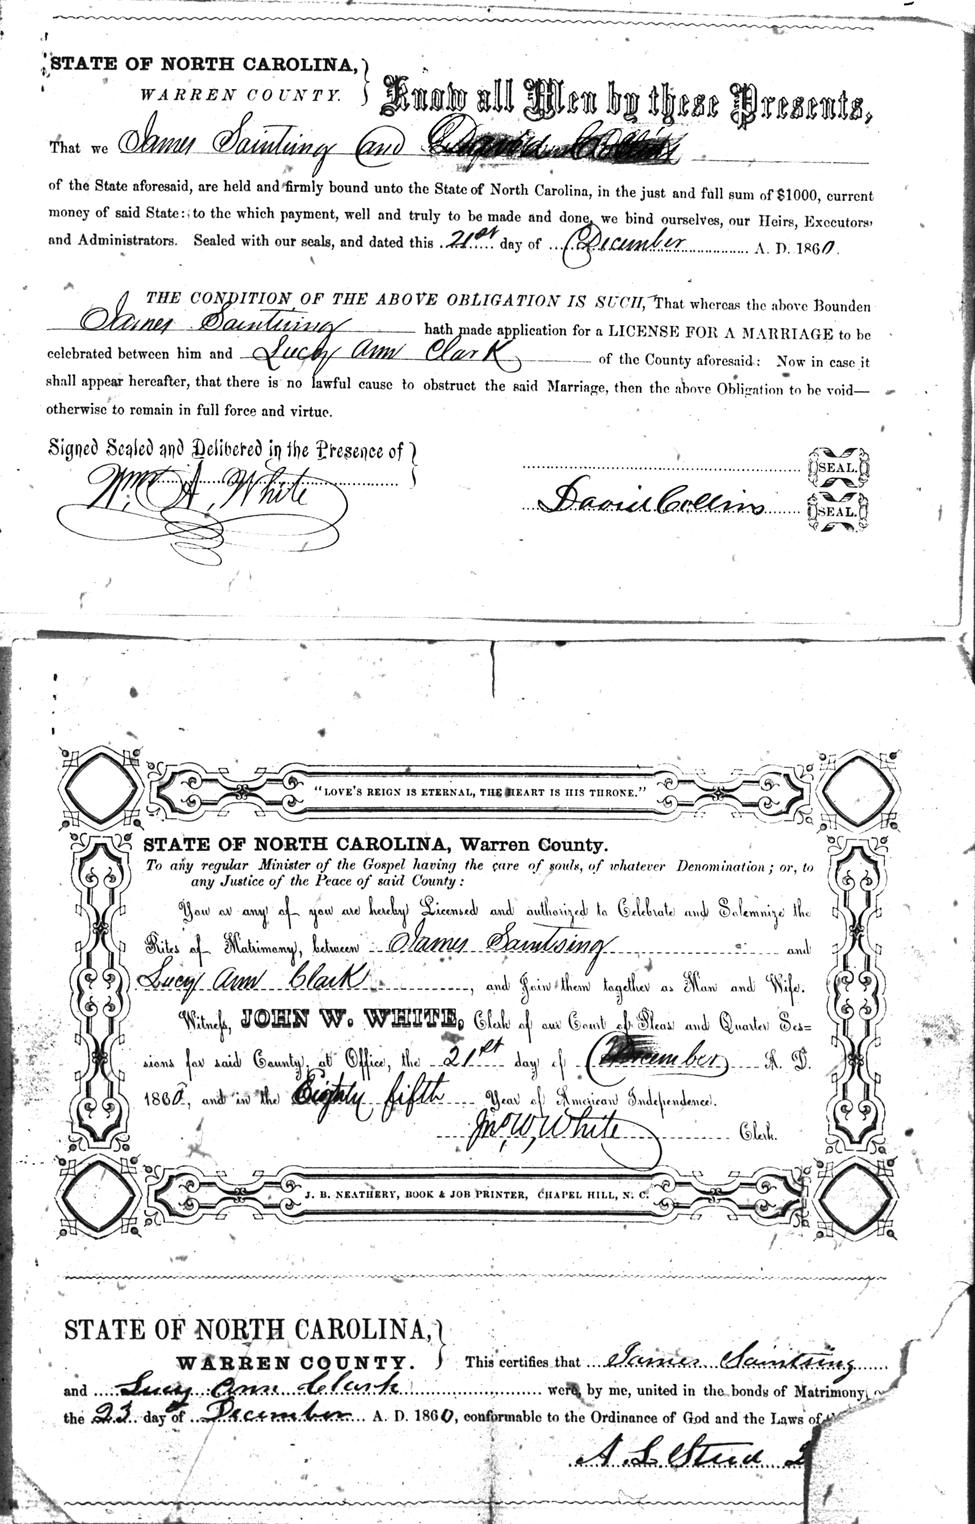 STATE OF NORTH CAROLINA,
WARREN COUNTY.
Know all Men by these Presents,
That we James Saintsing and
of the State aforesaid, are held and firmly bound unto the State of North Carolina, in the just and full sum of $1000, current
money of said State: to the which payment, well and truly to be made and done, we bind ourselves, our Heirs, Executors,
and Administrators. Sealed with our seals, and dated this 21st day of December A. D. 1860.
THE CONDITION OF THE ABOVE OBLIGATION IS SUCH, That whereas the above Bounden
James Saintsing hath made application for a LICENSE FOR A MARRIAGE to be
celebrated between him and Lucy Ann Clark of the County aforesaid: Now in case it
shall appear hereafter, that there is no lawful cause to obstruct the said Marriage, then the above Obligation to be void—
otherwise to remain in full force and virtue.
Signed Sealed and Delivered in the Presence of
SEAL.
Wm A. White
David Collins SEAL.
"LOVE'S REIGN IS ETERNAL, THE HEART IS HIS THRONE."
STATE OF NORTH CAROLINA, Warren County.
To any regular Minister of the Gospel having the care of souls, of whatever Denomination; or, to
any Justice of the Peace of said County:
You or any of you are hereby Licensed and authorized to Celebrate and Solemnize the
Rites of Matrimony, between James Saintsing and
Lucy Ann Clark, and Join them together as Man and Wife.
Witness, JOHN W. WHITE, Clerk of our Court of Pleas and Quarter Ses=
sions for said County, at Office, the 21st day of December A. D.
1860, and in the Eighty fifth Year of American Independence.
Jno. W. White Clerk.
J. B. NEATHERY, BOOK & JOB PRINTER, CHAPEL HILL, N. C.
STATE OF NORTH CAROLINA,
WARREN COUNTY.
This certifies that James Saintsing
and Lucy Ann Clark were, by me, united in the bonds of Matrimony,
the 23 day of December A. D. 1860, conformable to the Ordinance of God and the Laws of
A. L. Steed